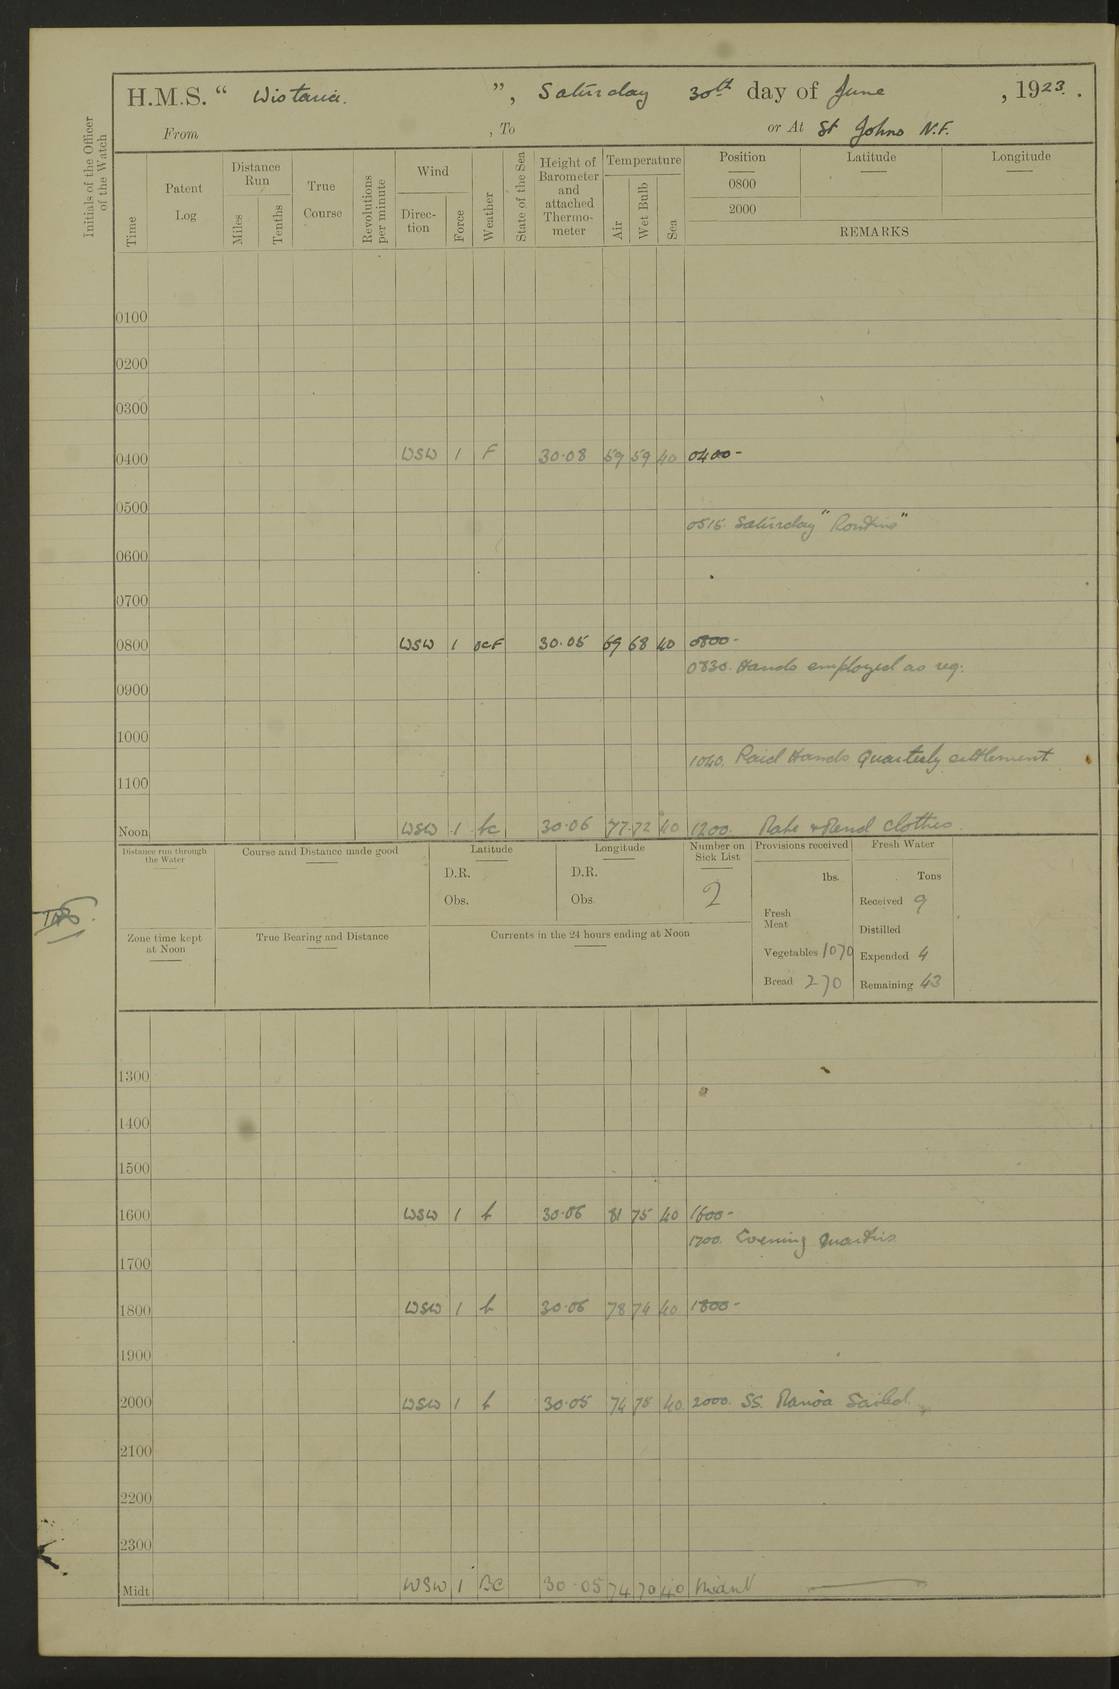 H.M.S. “ Wistaria. ”, Saturday 30th day of June , 1923.
From , To or At St Johns N.F.
Initials of the Officer of the Watch
Time
Patent Log
Distance Run
Miles
Tenths
True Course
Revolutions per minute
Wind
Direction
Force
Weather
State of the Sea
Height of Barometer and attached Thermometer
Temperature
Air
Wet Bulb
Sea
Position Latitude Longitude
0800
2000
REMARKS
0100
0200
0300
0400 WSW 1 F 30.08 59 59 40 0400-
0500
0515 Saturday "Routine"
0600
0700
0800 WSW 1 bcF 30.05 69 68 40 0800-
0830. Hands employed as req:
0900
1000
1040. Paid Hands Quarterly settlement
1100
Noon WSW 1 bc 30.06 77 72 40 1200. Make & Mend clothes.
Distance run through the Water
Course and Distance made good
Latitude
D.R.
Obs.
Longitude
D.R.
Obs.
Number on Sick List
2
Provisions received
lbs.
Fresh Meat
Vegetables 1070
Bread 270
Fresh Water
Tons
Received 9
Distilled
Expended 4
Remaining 43
Zone time kept at Noon
True Bearing and Distance
Currents in the 24 hours ending at Noon
1300
1400
1500
1600 WSW 1 b 30.06 81 75 40 1600-
1700. Evening Quarters
1700
1800 WSW 1 b 30.06 78 74 40 1800-
1900
2000 WSW 1 b 30.05 74 75 40 2000. SS. Sailed.
2100
2200
2300
Midt WSW 1 BC 30.05 74 70 40 Midnt